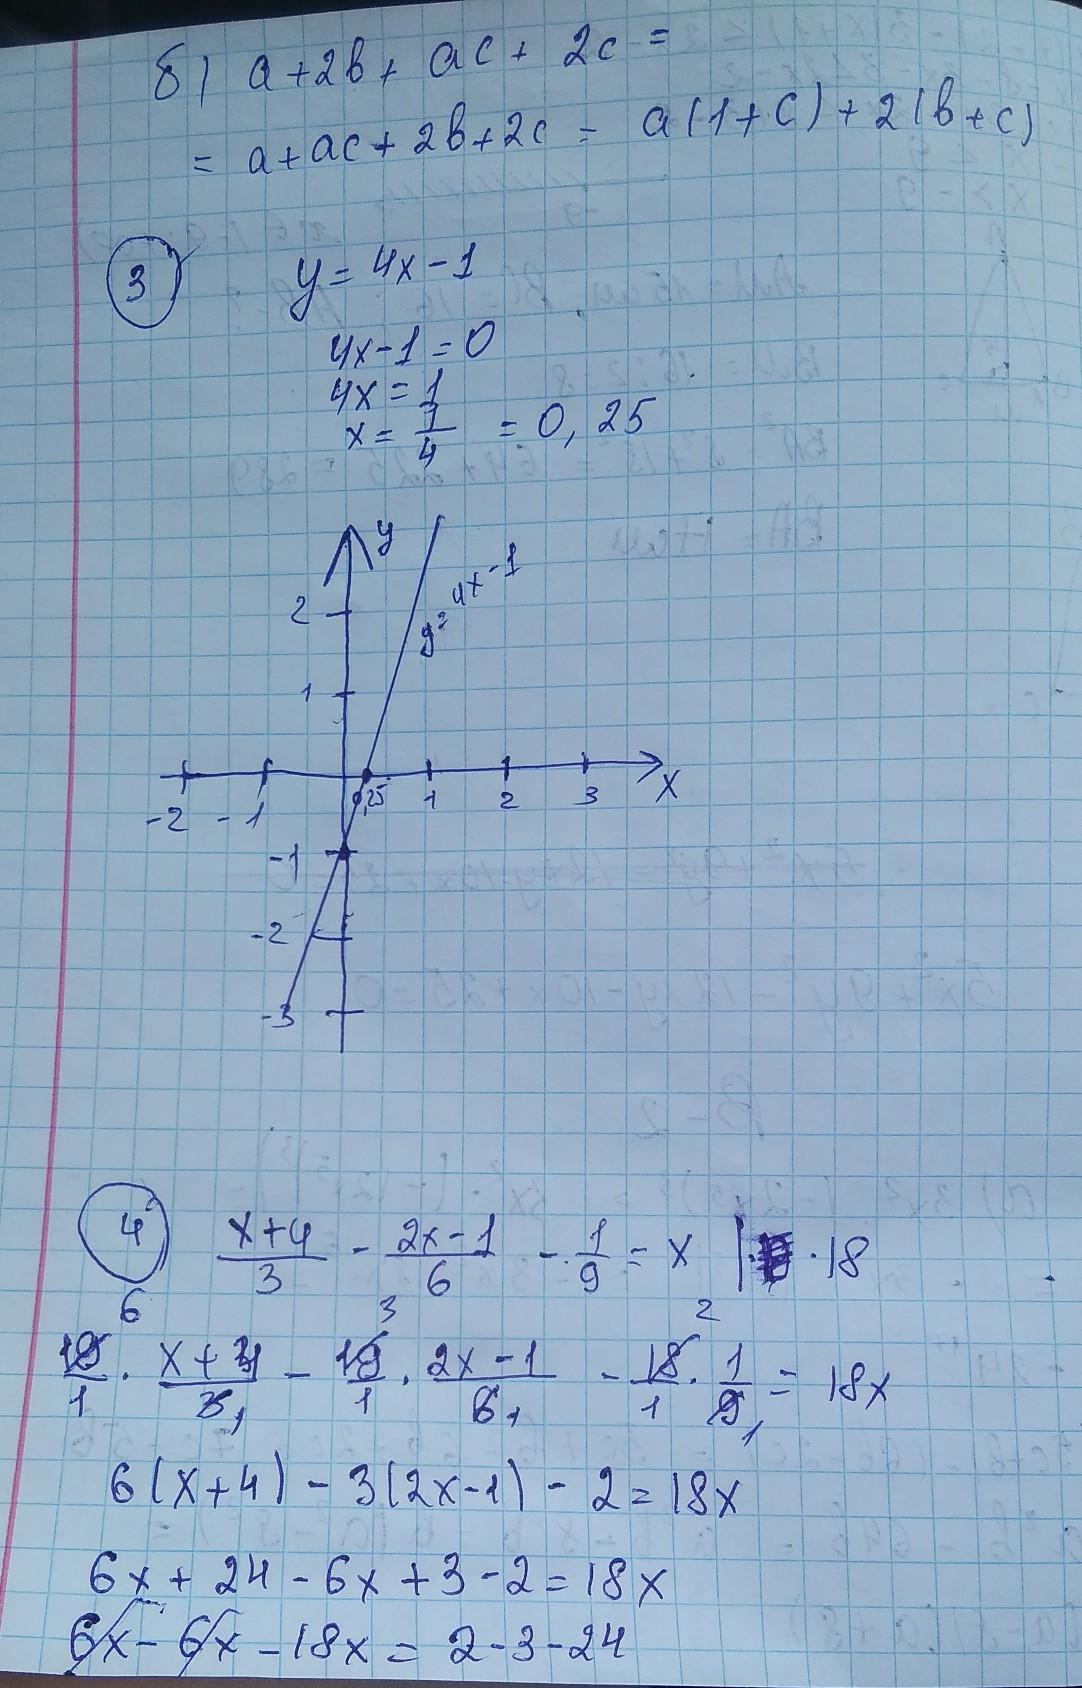 б) a+2b+ac+2c=
=a+ac+2b+2c=a(1+c)+2(b+c)
3 y=4x-1
4x-1=0
4x=1
x=1/4=0,25
y
y=4x-1
2
1
-2 -1 0,25 1 2 3 x
-1
-2
-3
4 (x+4)/3-(2x-1)/6-1/9=x |·18
6 3 2
18/1·(x+4)/3 1-18/1·(2x-1)/6 1-18/1·1/9 1=18x
6(x+4)-3(2x-1)-2=18x
6x+24-6x+3-2=18x
6x-6x-18x=2-3-24